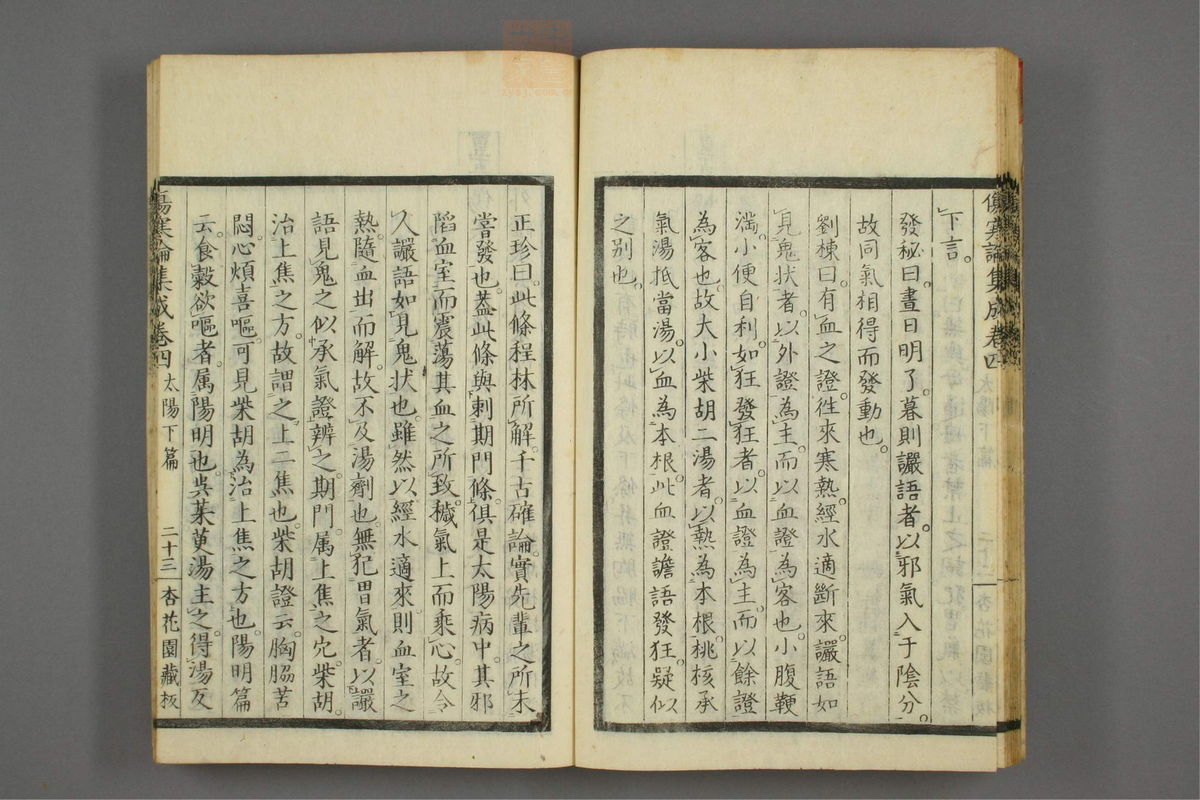 下言。
發秘曰。晝日明了。暮則讝語者。以邪氣入于陰分。
故同氣相得而發動也。
劉棟曰。有血之證。徃來寒熱。經水適斷來。讝語如
見鬼狀者。以外證為主。而以血證為客也。小腹鞕
滿。小便自利。如狂發狂者。以血證為主。而以餘證
為客也。故大小柴胡二湯者。以熱為本根。桃核承
氣湯抵當湯。以血為本根。此血證譫語發狂。疑似
之別也。
傷寒論集成卷四 太陽下篇
正珍曰。此條程林所解。千古確論。實先輩之所未
嘗發也。蓋此條與刺期門條。俱是太陽病中。其邪
陷血室。而震蕩其血之所致。穢氣上而乘心。故令
人讝語如見鬼狀也。雖然以經水適來。則血室之
熱。隨血出而解。故不及湯劑也。無犯胃氣者。以讝
語見鬼之似承氣證辨之。期門。属上焦之穴。柴胡。
治上焦之方。故謂之上二焦也。柴胡證云。胸脇苦
悶。心煩喜嘔。可見柴胡為治上焦之方也。陽明篇
云。食穀欲嘔者。属陽明也。吳茱萸湯主之。得湯反
傷寒論集成卷四 太陽下篇 二十三 杏花園藏板